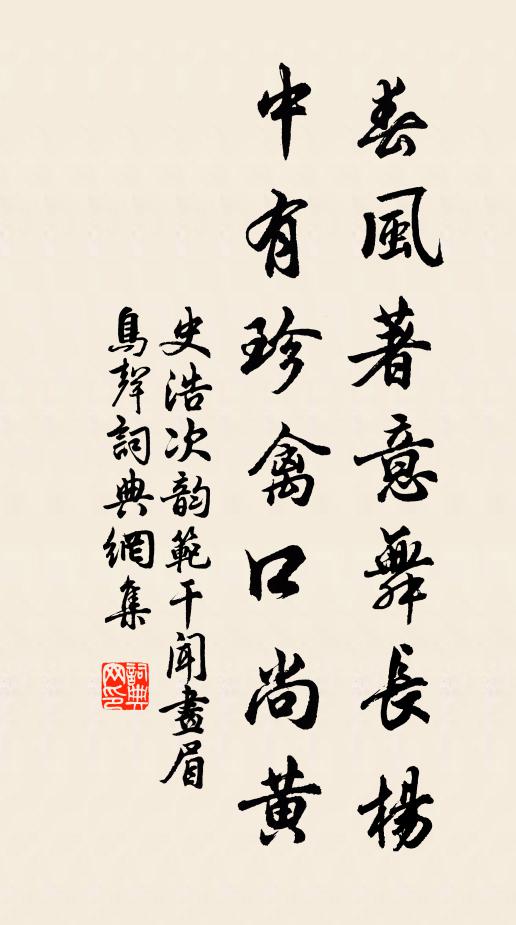 春風著意舞長楊
中有珍禽口尚黃
史浩次韵範干聞畫眉
鳥聲詞典網集
詞典
网印